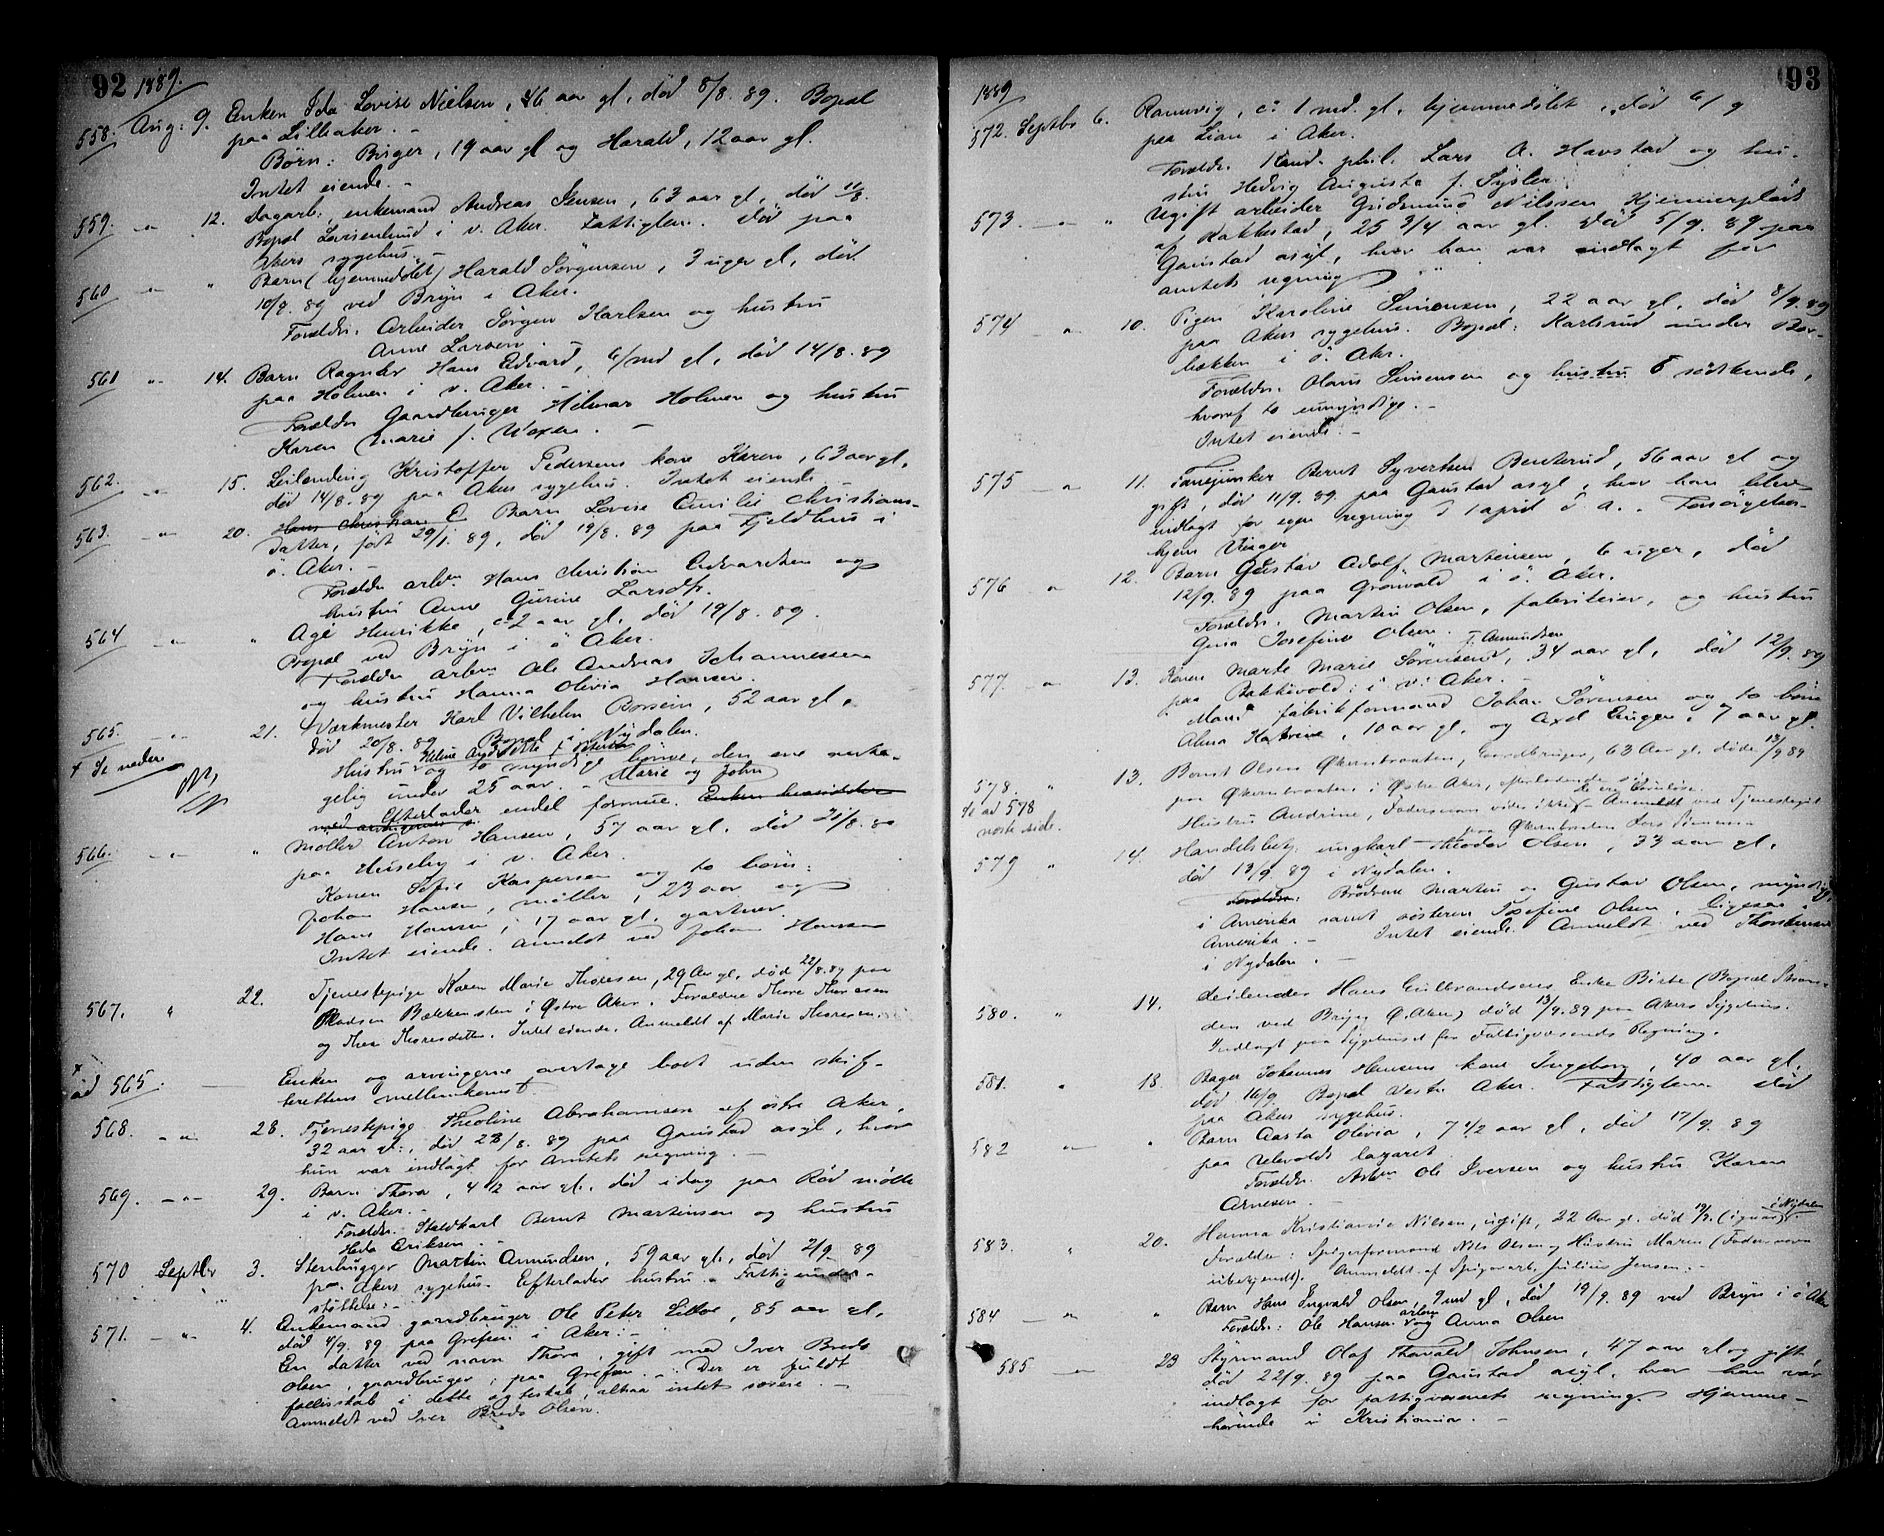 92 1889.
558. Aug: 9. Enken Ida Lovise Nielsen, 46 aar gl, død 8/8. 89. Bopæl
paa Lilleaker. -
Børn: Birger, 19 aar gl og Harald, 12 aar gl.
Intet eiende. -
559. 12. Dagarb., enkemand Andreas Jensen, 63 aar gl, død 11/8.
Bopæl Lovisenlund i v. Aker. Fattiglem. Død paa
Akers sygehus. -
560 " Barn (hjemmedøbt) Harald Jørgensen, 3 uger gl, død
10/8. 89 ved Bryn i Aker.
Forældr. Arbeider Jørgen Karlsen og hustru
Anne Larsen.
561 14. Barn Ragnar Hans Edvard, 6/md gl, død 14/8. 89
paa Holmen i v. Aker. -
Forældr Gaardbruger Hilmar Holmen og hustru
Karen Marie f. Woxen. -
562. 15. Leilending Kristoffer Pedersens kone Karen, 63 aar gl,
død 14/8. 89 paa Akers sygehus. Intet eiende. -
563. 20. Hans Christian E Barn Lovise Emilie Christians-
datter, født 29/1. 89, død 19/8. 89 paa Fjeldhus i
ø. Aker. -
Forældr arbdr Hans Christian Edvardsen og
hustru Anne Gurine Larsdtr.
564 " Age Henrikke, c 2 aar gl, død 19/8. 89.
Bopæl ved Bryn i ø Aker.
Forældre arbdr Ole Andreas Johannessen
og hustru Hanna Olivia Hansen.
565. 21. Værkmester Karl Vilhelm Borsem, 52 aar gl,
død 20/8. 89 Bopæl i Nydalen.
+ Se neden
Hustru og to myndige børn, den ene
gelig under 25 aar. - Marie og John
Efterlader endel formue.
566. " Møller Anton Hansen, 57 aar gl, død 20/8. 89
paa Huseby i v. Aker.
Konen Sofie Kaspersen og to børn:
Johan Hansen, møller, 23 aar og
Hans Hansen, 17 aar gl, gartner.
Intet eiende. Anmeldt ved Johan Hansen
567. " 22. Tjenestepige Karen Marie Thoresen, 29 Aar gl, død 22/8. 89 paa
Pladsen Bækkensten i Østre Aker. Forældre Thore Thoresen
og Thea Thoresdatter. Intet eiende. Anmeldt af Marie Thoresen.
+
ad 565. Enken og arvingerne overtage boet uden skif-
terettens mellemkomst.
568. 28. Tjenestepige Theoline Abrahamsen af østre Aker,
32 aar gl., død 28/8. 89 paa Gaustad asyl, hvor
hun var indlagt for Amtets regning. -
569. 29. Barn Thora, 4 1/2 aar gl., død idag paa Rød mølle
i v. Aker. -
Forældr. Staldkarl Bernt Martinsen og hustru
Heda Eriksen. -
570 Septbr 3. Stenhugger Martin Amundsen, 59 aar gl., død 2/9. 89
paa Akers sygehus. Efterlader hustru. Fattigunder-
støttelse. -
571. 4. Enkemand gaardbruger Ole Peter Lilloe, 85 aar gl,
død 4/9. 89 paa Grefsen i Aker. -
En datter ved navn Thora, gift med Iver Bredo
Olsen, gaardbruger, paa Grefsen. - Der er fuldt
fællesskab i dette ægteskab, altsaa intet særeie. -
Anmeldt ved Iver Bredo Olsen.
1889 93
572. Septbr 6. Rannvig, c: 1 md. gl, hjemmedøbt, død 6/9
paa Lian i Aker.
Forældr. Kand. phil. Lars A. Havstad og hu-
stru Hedvig Augusta f. Sysler.
573 " Ugift arbeider Gudmund Nilssen Hjemmerplads
af Nakkestad, 25 3/4 aar gl. død 5/9. 89 paa
Gaustad asyl, hvor han var indlagt for
amtets regning
574 10. Pigen Karoline Simensen, 22 aar gl, død 8/9. 89
paa Akers sygehus. Bopæl: Karlsrud under
bækken i ø. Aker.
Forældr. Olaus Simensen og hustru 5 sødskende,
hvoraf to umyndige. -
Intet eiende. -
575 11. Fanejunker Bernt Syvertsen Benterud, 56 aar gl og
gift, død 11/9. 89 paa Gaustad asyl, hvor han blev
indlagt for egen regning d 1 april d. a. - Forsørgelses-
hjem Vinger
576 12. Barn Gustav Adolf Martinsen, 6 uger, død
12/9. 89 paa Grønvold i ø. Aker.
Forældr. Martin Olsen, fabrikeier, og hustru
Gina Josefine Olsen.
f. Amundsen
577. 13. Konen Marte Marie Sørensen, 34 aar gl, død 12/9. 89
paa Bakkevold i v. Aker. -
Mand fabrikformand Johan Sørensen og to børn
Alma Katrine, 10 aar gl, og Axel Eugen, 7 aar gl.
578. " 13. Bernt Olsen Økernbraaten, Gaardbruger, 63 Aar gl, døde 13/9 89
Se ad 578
næste side.
paa Økernbraaten i Østre Aker, efterladende sig
Hustru Andrine, Fadersnavn vides ikke. - Anmeldt ved Tjenestepige
paa Økernbraaten
579 " 14. Handelsbetj. ungkarl Theodor Olsen, 33 aar gl,
død 13/9. 89 i Nydalen.
Forældr: Brødrene Martin og Gustav Olsen, myndige,
i Amerika samt søsteren Josefine Olsen, ligesaa i
Amerika. - Intet eiende. Anmeldt ved Thorstensen
i Nydalen. -
580. " 14. Leilending Hans Gulbrandsens Enke Birte (Bopæl Stran-
den ved Bryn Ø. Aker) død 13/9. 89 paa Akers Sygehus.
Indlagt paa Sygehuset for Fattigvæsenets Regning.
581. " 18. Bager Johannes Hansens kone Ingeborg, 40 aar gl,
død 16/9. Bopæl Vestr. Aker. Fattiglem. død
paa Akers sygehus.
582 " Barn Aasta Olivia, 7 1/2 aar gl, død 17/9. 89
paa Ullevolds lazaret.
Forældr. Arbdr Ole Iversen og hustru Karen
Arnesen. -
583. " 20. Hanna Kristiania Nilsen, ugift, 22 Aar gl. død 19/9. (igaar). i Nydalen
Forældre: Spigerformand Nils Olsen og Hustru Maren (Fadersnavn
ubekjendt). Anmeldt af Spigerarb. Julius Jensen. -
584 " Barn Hans Ingvald Olsen, 9 md gl, død 19/9. 89 ved Bryn i ø Aker
Forældr: Ole Hansen arbdr og Anna Olsen
585 23 Styrmand Olaf Thorvald Johnsen, 47 aar gl og gift,
død 22/9. 89 paa Gaustad asyl, hvor han var
indlagt for fattigvæsenets regning. Hjemme-
hørende i Kristiania. -